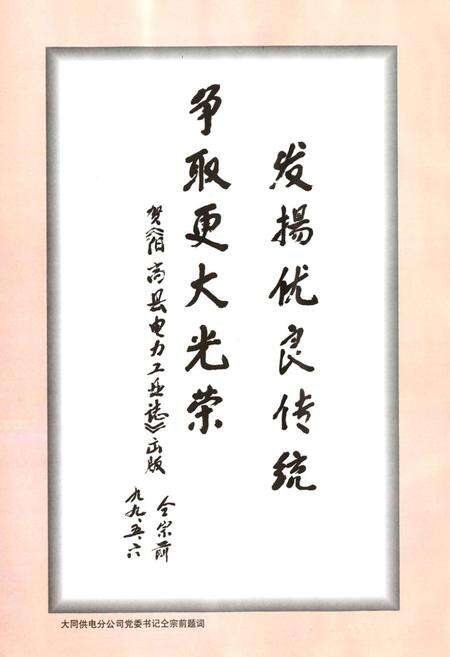 发揚优良传统
争取更大光荣
贺《阳高县电力工业志》出版
仝宗前
九九.五.六
大同供电分公司党委书记仝宗前题词